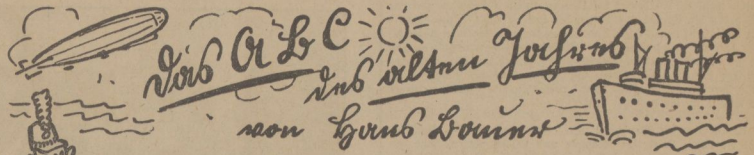 Das ABC
des alten Jahres
von Hans Bauer